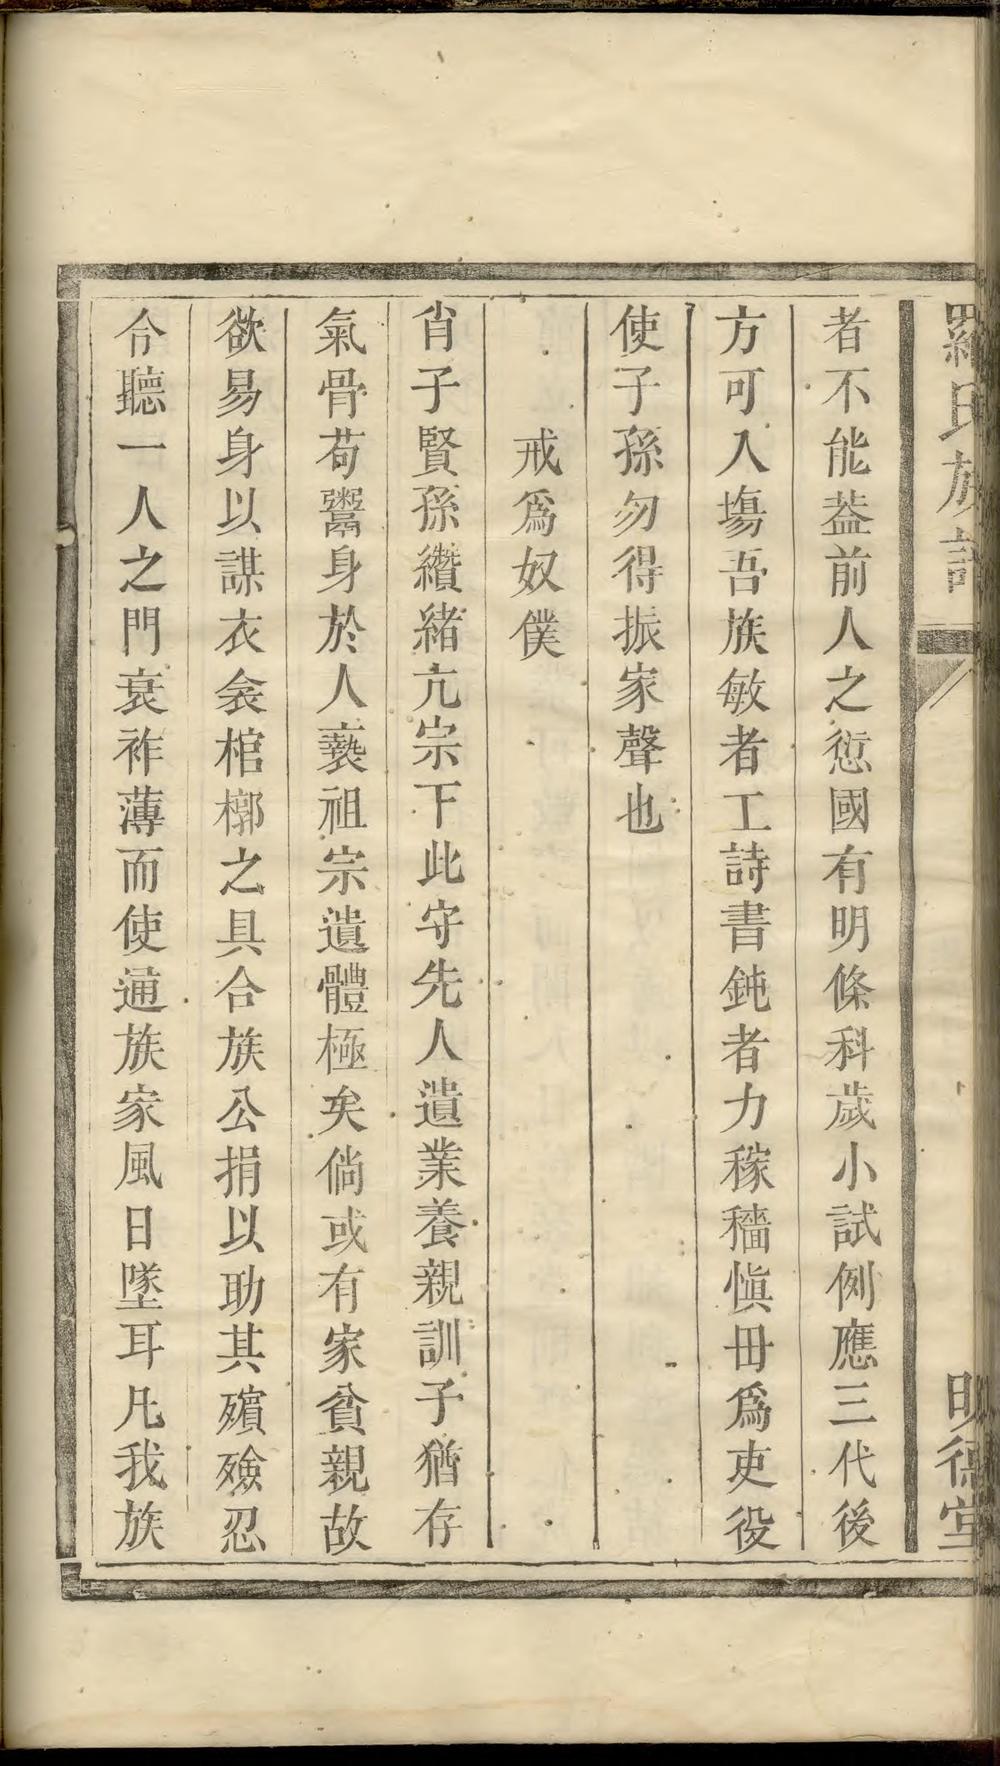 羅氏族譜
明德堂
者不能葢前人之愆國有明條科歲小試例應三代後
方可入塲吾族敏者工詩書鈍者力稼穡愼毌爲吏役
使子孫勿得振家聲也
戒爲奴僕
肖子賢孫纘緒亢宗下此守先人遺業養親訓子猶存
氣骨苟鬻身於人褻祖宗遺體極矣倘或有家貧親故
欲易身以謀衣衾棺槨之具合族公捐以助其殯殮忍
令聽一人之門衰祚薄而使通族家風日墜耳凡我族